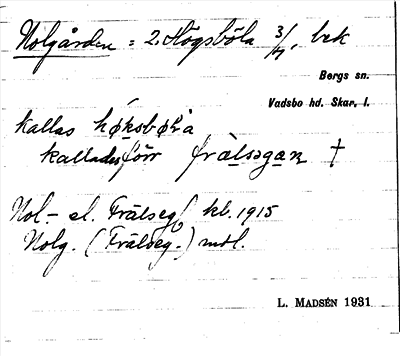 Nolgården = 2. Högsböla 3/4, bek
Bergs sn.
Vadsbo hd. Skar. l.
kallas høksbøla
kallades förr frälsegan †
Nol- el. Frälseg. kb. 1915
Nolg. (Frälseg.) mtl.
L. Madsén 1931